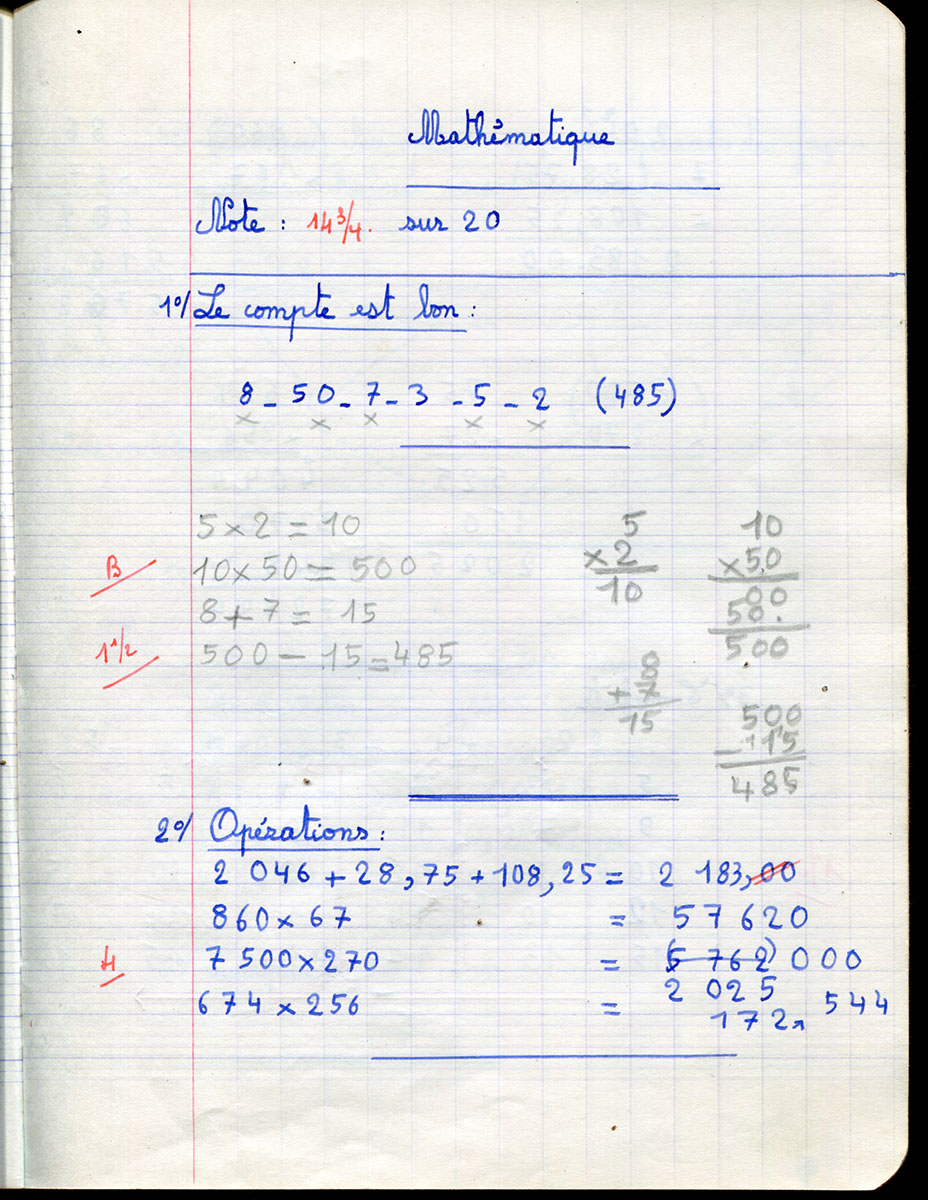 Mathématique
Note : 14 3/4. sur 20
1°/ Le compte est bon :
8 - 50 - 7 - 3 - 5 - 2 (485)
x x x x x
5 x 2 = 10
B 10 x 50 = 500
8 + 7 = 15
1 1/2 500 - 15 = 485
5
x 2
10
10
x 50
00
50.
500
8
+ 7
15
500
- 115
485
2°/ Opérations :
2 046 + 28,75 + 108,25 = 2 183,00
860 x 67 = 57 620
4 7 500 x 270 = (5 762) 000
2 025
674 x 256 = 172 544